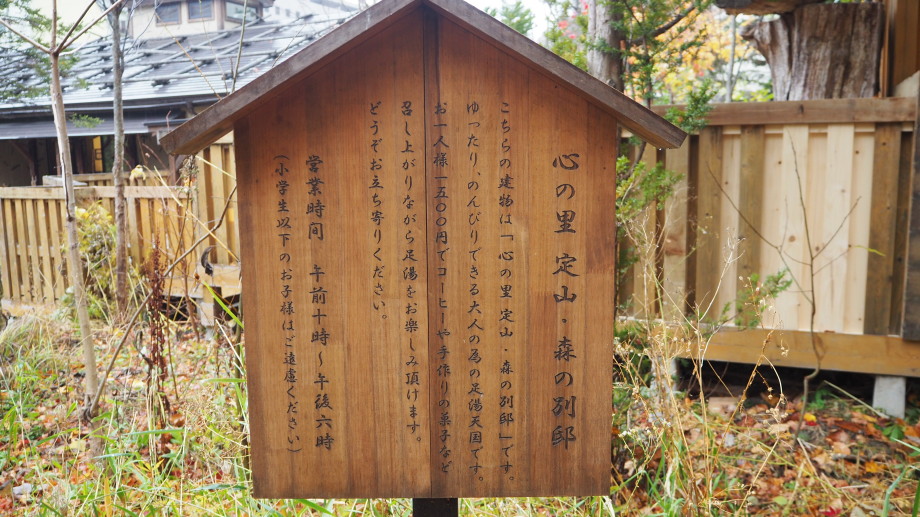 心の里 定山・森の別邸
こちらの建物は「心の里 定山・森の別邸」です。
ゆったり、のんびりできる大人の為の足湯天国です。
お一人様一五〇〇円でコーヒーや手作りの菓子など
召し上がりながら足湯をお楽しみ頂けます。
どうぞお立ち寄りください。
営業時間 午前十時～午後六時
(小学生以下のお子様はご遠慮ください)